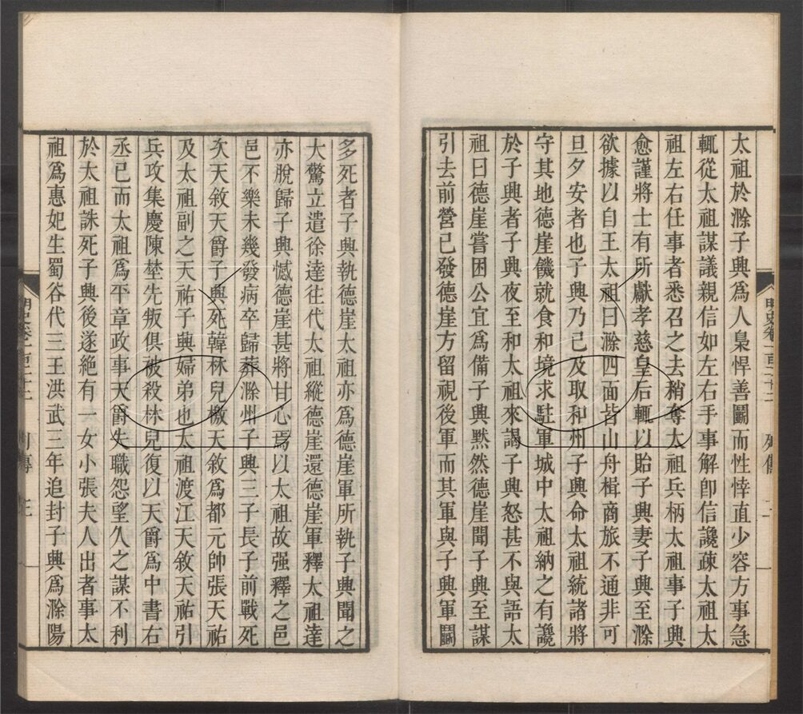 太祖於滁子興爲人梟悍善鬭而性悻直少容方事急
輒從太祖謀議親信如左右手事解卽信讒疎太祖太
祖左右任事者悉召之去稍奪太祖兵柄太祖事子興
愈謹將士有所獻孝慈皇后輒以貽子興妻子興至滁
欲據以自王太祖曰滁四面皆山舟楫商旅不通非可
旦夕安者也子興乃已及取和州子興命太祖統諸將
守其地德崖饑就食和境求駐軍城中太祖納之有讒
於子興者子興夜至和太祖來謁子興怒甚不與語太
祖曰德崖嘗困公宜爲備子興默然德崖聞子興至謀
引去前營已發德崖方留視後軍而其軍與子興軍鬭
明史卷一百二十二 列傳 二
多死者子興執德崖太祖亦爲德崖軍所執子興聞之
大驚立遣徐達往代太祖縱德崖還德崖軍釋太祖達
亦脫歸子興憾德崖甚將甘心焉以太祖故强釋之邑
邑不樂未幾發病卒歸葬滁州子興三子長子前戰死
次天敘天爵子興死韓林兒檄天敘爲都元帥張天祐
及太祖副之天祐子興婦弟也太祖渡江天敘天祐引
兵攻集慶陳埜先叛俱被殺林兒復以天爵爲中書右
丞已而太祖爲平章政事天爵失職怨望久之謀不利
於太祖誅死子興後遂絶有一女小張夫人出者事太
祖爲惠妃生蜀谷代三王洪武三年追封子興爲滁陽
明史卷一百二十二 列傳 三